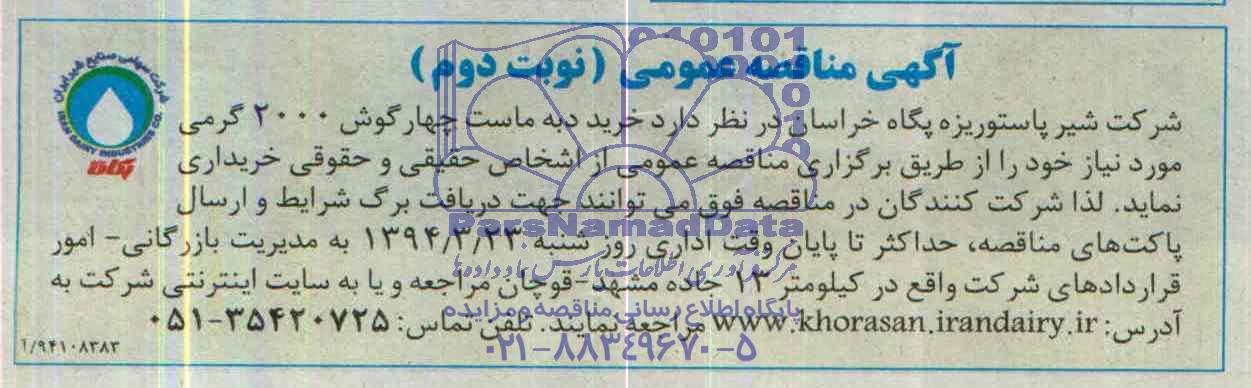 آگهی مناقصه عمومی (نوبت دوم)
شرکت شیر پاستوریزه پگاه خراسان در نظر دارد خرید دبه ماست چهارگوش ۲۰۰۰ گرمی
مورد نیاز خود را از طریق برگزاری مناقصه عمومی از اشخاص حقیقی و حقوقی خریداری
نماید. لذا شرکت کنندگان در مناقصه فوق می توانند جهت دریافت برگ شرایط و ارسال
پاکت‌های مناقصه، حداکثر تا پایان وقت اداری روز شنبه ۱۳۹۴/۳/۲۳ به مدیریت بازرگانی- امور
قراردادهای شرکت واقع در کیلومتر ۱۳ جاده مشهد-قوچان مراجعه و یا به سایت اینترنتی شرکت به
آدرس: www.khorasan.irandairy.ir مراجعه نمایند. تلفن تماس: ۰۵۱-۳۵۴۲۰۷۲۵
۱/۹۴۱۰۸۳۸۳
شرکت سهامی صنایع شیر ایران
IRAN DAIRY INDUSTRIES CO.
پگاه
ParsNamadData
پایگاه اطلاع رسانی مناقصه و مزایده
۰۲۱-۸۸۳۴۹۶۷۰-۵